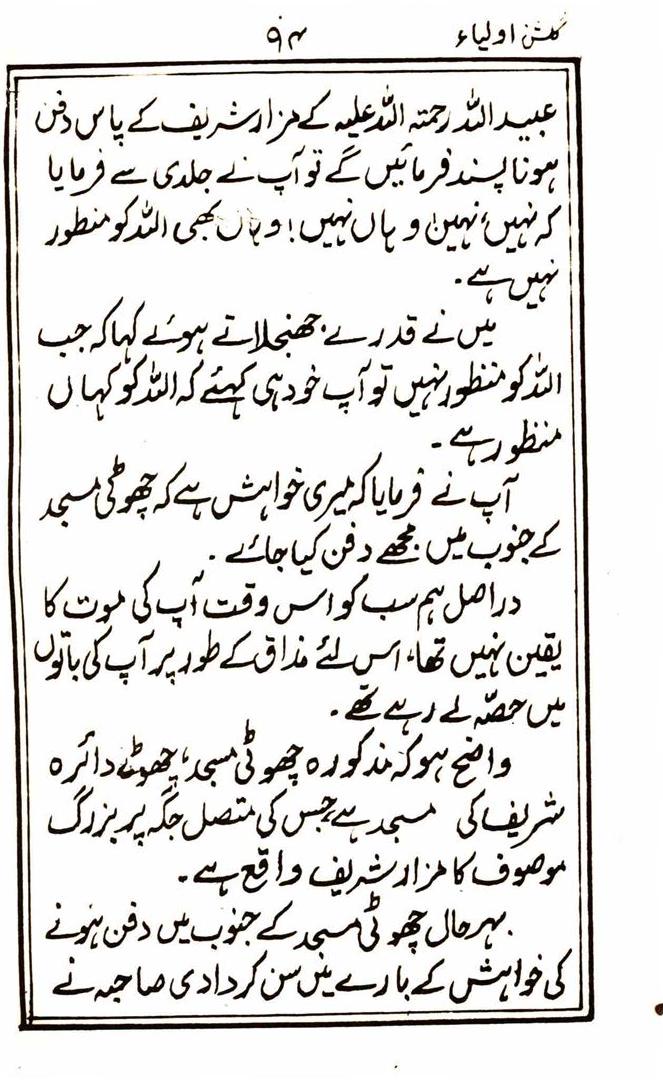 گلشنِ اولیاء ۹۴
عبید اللہ رحمتہ اللہ علیہ کے مزار شریف کے پاس دفن
ہونا پسند فرمائیں گے تو آپ نے جلدی سے فرمایا
کہ نہیں، نہیں وہاں نہیں! وہاں بھی اللہ کو منظور
نہیں ہے۔
میں نے قدرے جھنجلاتے ہوئے کہا کہ جب
اللہ کو منظور نہیں تو آپ خود ہی کہئے کہ اللہ کو کہاں
منظور ہے۔
آپ نے فرمایا کہ میری خواہش ہے کہ چھوٹی مسجد
کے جنوب میں مجھے دفن کیا جائے۔
دراصل ہم سب کو اس وقت آپ کی موت کا
یقین نہیں تھا، اس لئے مذاق کے طور پر آپ کی باتوں
میں حصّہ لے رہے تھے۔
واضح ہو کہ مذکورہ چھوٹی مسجد، چھوٹے دائرہ
شریف کی مسجد ہے، جس کی متصل جگہ پر بزرگ
موصوف کا مزار شریف واقع ہے۔
بہرحال چھوٹی مسجد کے جنوب میں دفن ہونے
کی خواہش کے بارے میں سن کر دادی صاحبہ نے